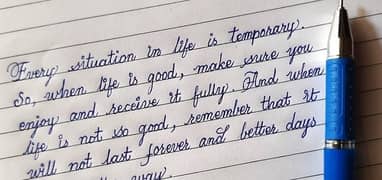 Every situation in life is temporary.
So, when life is good, make sure you
enjoy and receive it fully. And when
life is not so good, remember that it
will not last forever and better days
way.